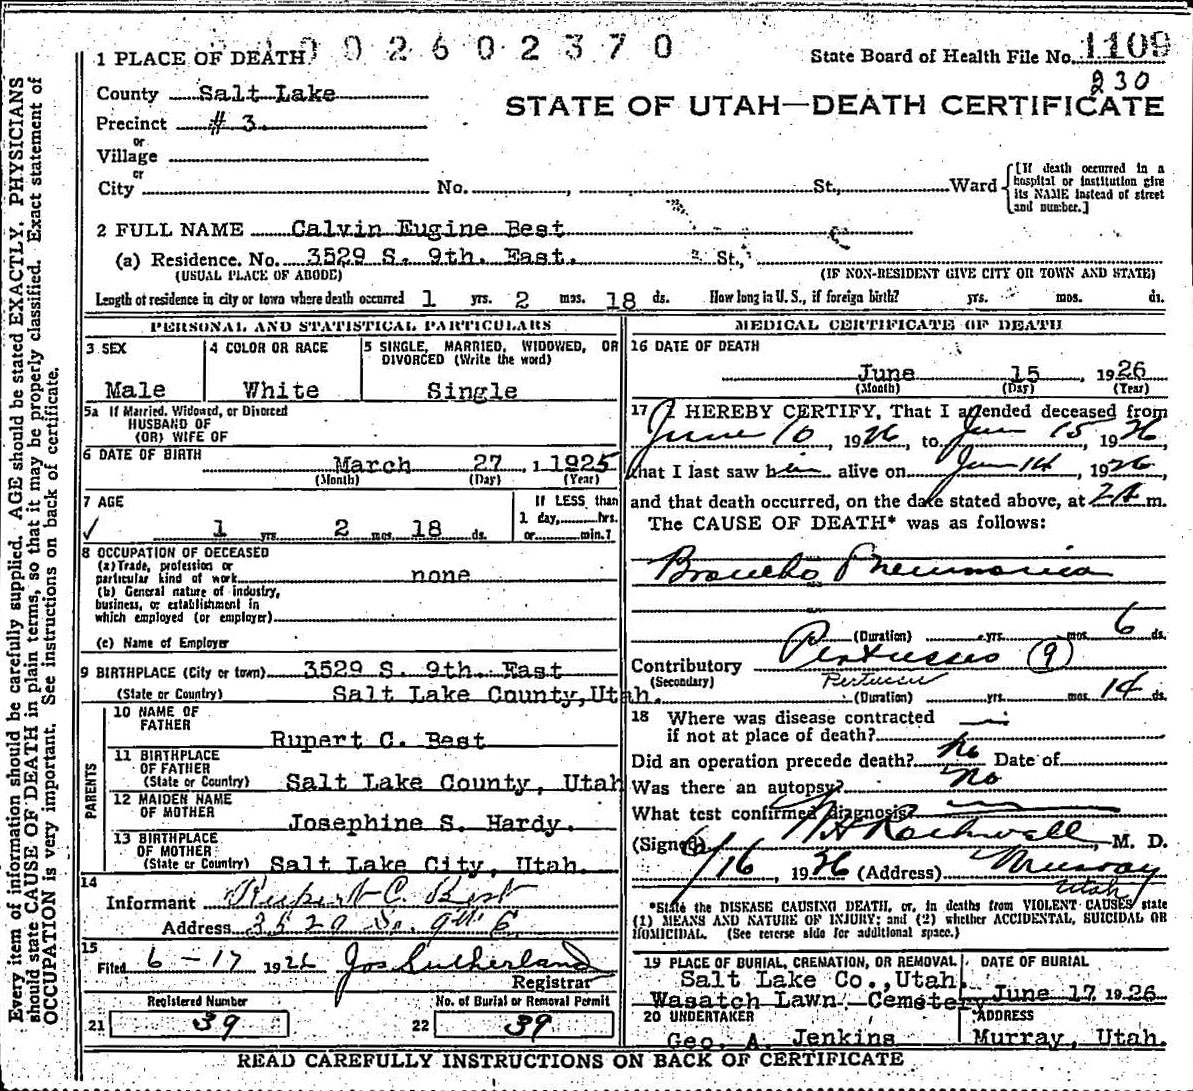 0 0 2 6 0 2 3 7 0
1 PLACE OF DEATH
State Board of Health File No. 1109
230
County Salt Lake
STATE OF UTAH—DEATH CERTIFICATE
Precinct # 3.
or
Village
or
City No. , St., Ward
[If death occurred in a hospital or institution give its NAME instead of street and number.]
2 FULL NAME Calvin Eugine Best
(a) Residence. No. 3529 S. 9th. East. St.,
(USUAL PLACE OF ABODE) (IF NON-RESIDENT GIVE CITY OR TOWN AND STATE)
Length of residence in city or town where death occurred 1 yrs. 2 mos. 18 ds. How long in U. S., if foreign birth? yrs. mos. ds.
PERSONAL AND STATISTICAL PARTICULARS
3 SEX
Male
4 COLOR OR RACE
White
5 SINGLE, MARRIED, WIDOWED, OR
DIVORCED (Write the word)
Single
5a If Married, Widowed, or Divorced
HUSBAND OF
(OR) WIFE OF
6 DATE OF BIRTH
March 27 , 1 1925
(Month) (Day) (Year)
7 AGE
✓ 1 yrs. 2 mos. 18 ds.
If LESS than
1 day, hrs.
or min.?
8 OCCUPATION OF DECEASED
(a) Trade, profession or
particular kind of work none
(b) General nature of industry,
business, or establishment in
which employed (or employer)
(c) Name of Employer
9 BIRTHPLACE (City or town) 3529 S. 9th. East
(State or Country) Salt Lake County, Utah.
PARENTS
10 NAME OF
FATHER
Rupert C. Best
11 BIRTHPLACE
OF FATHER
(State or Country) Salt Lake County, Utah
12 MAIDEN NAME
OF MOTHER
Josephine S. Hardy.
13 BIRTHPLACE
OF MOTHER
(State or Country) Salt Lake City, Utah.
14
Informant Rupert C. Best
Address 3529 So. 9th E
15
Filed 6-17 1926 Jos Sutherland
Registrar
Registered Number
21 39
No. of Burial or Removal Permit
22 39
MEDICAL CERTIFICATE OF DEATH
16 DATE OF DEATH
June 15 , 1926
(Month) (Day) (Year)
17 I HEREBY CERTIFY, That I attended deceased from
June 10, 1926, to Jun 15, 1926,
that I last saw him alive on Jun 14, 1926,
and that death occurred, on the date stated above, at 2 A m.
The CAUSE OF DEATH* was as follows:
Broncho Pneumonia
(Duration) yrs. mos. 6 ds.
Contributory Pertussis (9)
(Secondary) Pertussis
(Duration) yrs. mos. 14 ds.
18 Where was disease contracted
if not at place of death?
Did an operation precede death? No Date of
Was there an autopsy? No
What test confirmed diagnosis?
(Signed) W H Rockwell, M. D.
6/16, 1926 (Address) Murray
Utah
*State the DISEASE CAUSING DEATH, or, in deaths from VIOLENT CAUSES, state
(1) MEANS AND NATURE OF INJURY; and (2) whether ACCIDENTAL, SUICIDAL OR
HOMICIDAL. (See reverse side for additional space.)
19 PLACE OF BURIAL, CREMATION, OR REMOVAL
Salt Lake Co., Utah.
Wasatch Lawn. Cemetery
DATE OF BURIAL
June 17, 1926
20 UNDERTAKER
Geo. A. Jenkins
ADDRESS
Murray, Utah.
READ CAREFULLY INSTRUCTIONS ON BACK OF CERTIFICATE
Every item of information should be carefully supplied. AGE should be stated EXACTLY. PHYSICIANS
should state CAUSE OF DEATH in plain terms, so that it may be properly classified. Exact statement of
OCCUPATION is very important. See instructions on back of certificate.